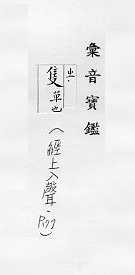 彙音寶鑑
出·
隻 單也
(經上入聲·